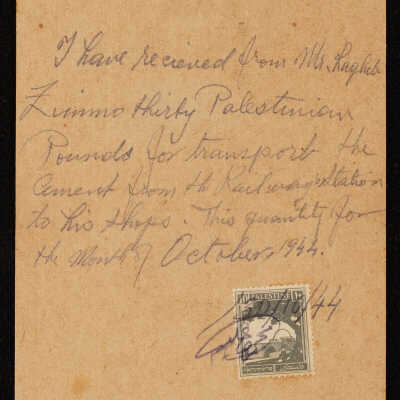 I have recieved from Mr. Raghib
Zimmo thirty Palestinian
Pounds for transport the
Cement from the Railway Station
to his shops. This quantity for
the Month of October, 1944.
20/10/44
PALESTINE